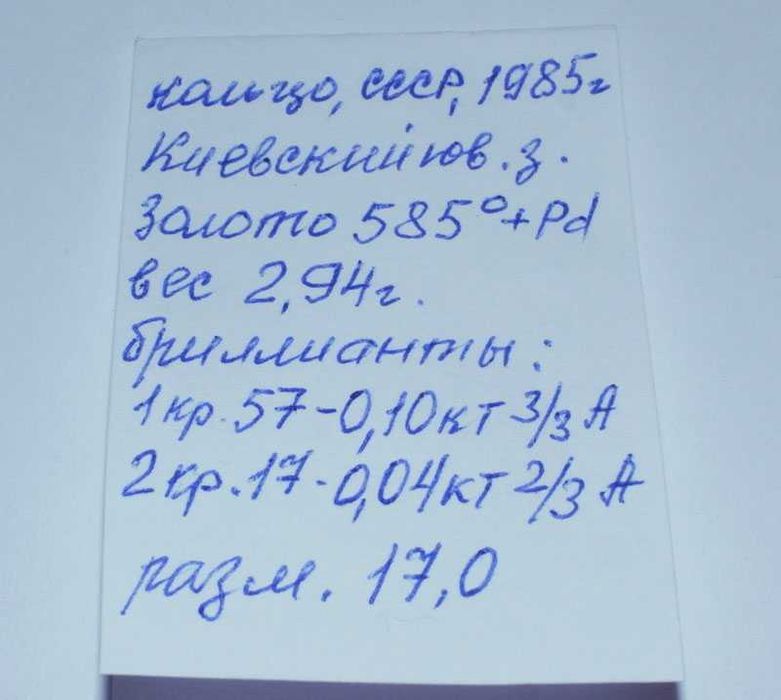 кольцо, СССР, 1985г
Киевский юв.з.
Золото 585°+Pd
вес 2,94г.
бриллианты:
1кр.57-0,10кт 3/3 А
2кр.17-0,04кт 2/3 А
разм. 17,0